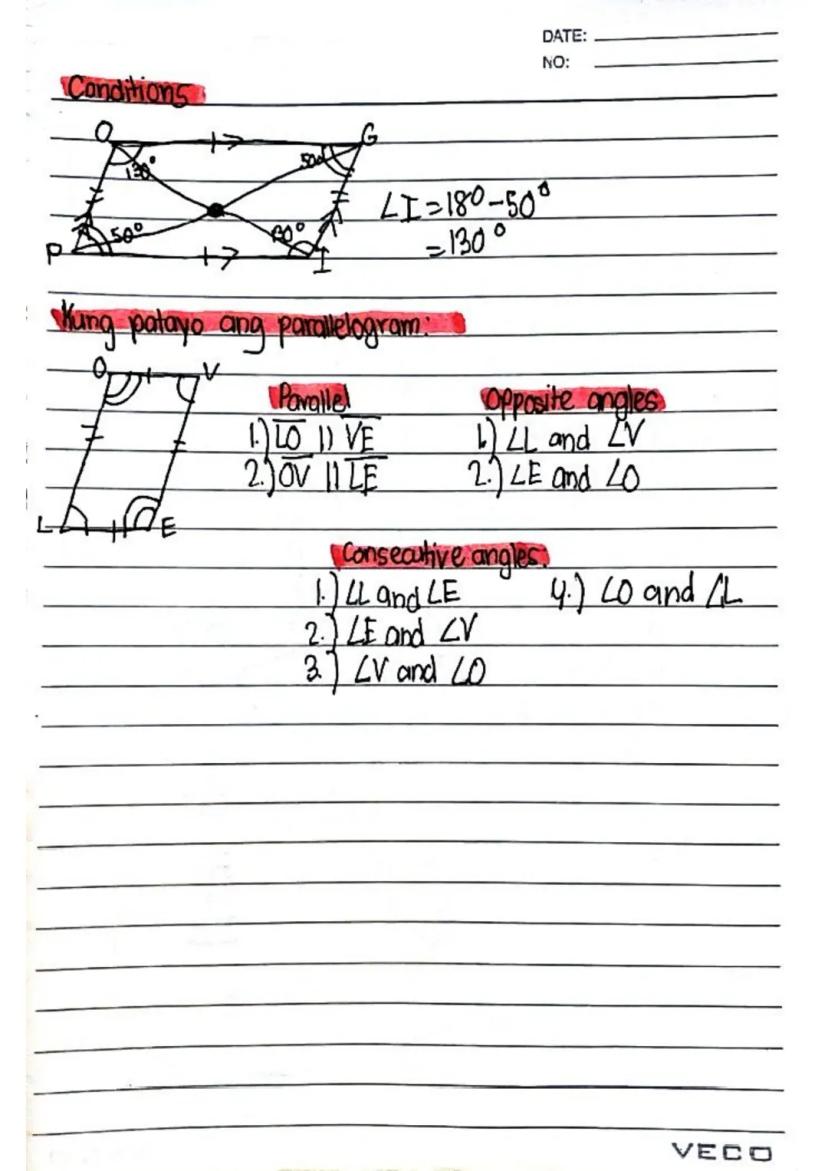 DATE:
NO:
Conditions
O G
130° 50°
∠I = 180 - 50°
= 130°
50°
P I
Kung patayo ang parallelogram:
O V
Parallel
1.) LO || VE
2.) OV || LE
L E
Opposite angles
1.) ∠L and ∠V
2.) ∠E and ∠O
Consecutive angles:
1.) ∠L and ∠E
2.) ∠E and ∠V
3.) ∠V and ∠O
4.) ∠O and ∠L
VECO